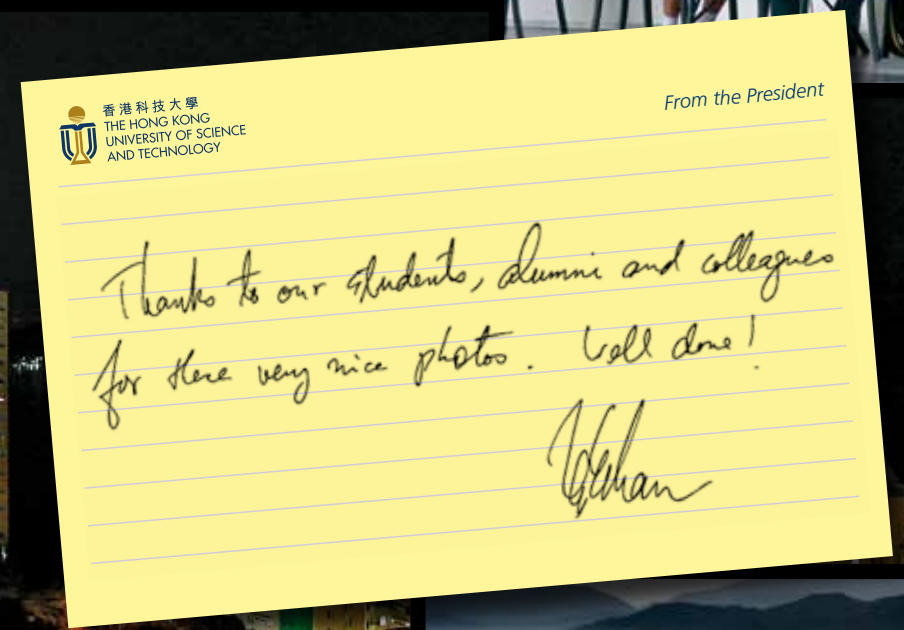 香港科技大學
THE HONG KONG
UNIVERSITY OF SCIENCE
AND TECHNOLOGY
From the President
Thanks to our students, alumni and colleagues
for these very nice photos. Well done!